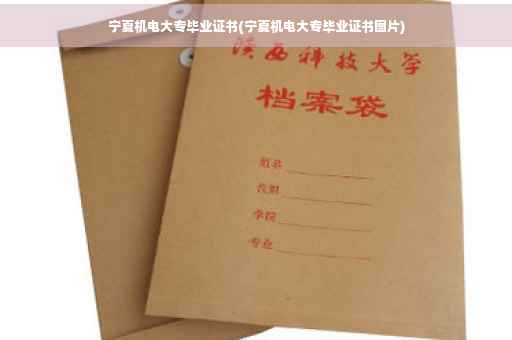 宁夏机电大专毕业证书(宁夏机电大专毕业证书图片)
陕西科技大学
档案袋
学院
专业